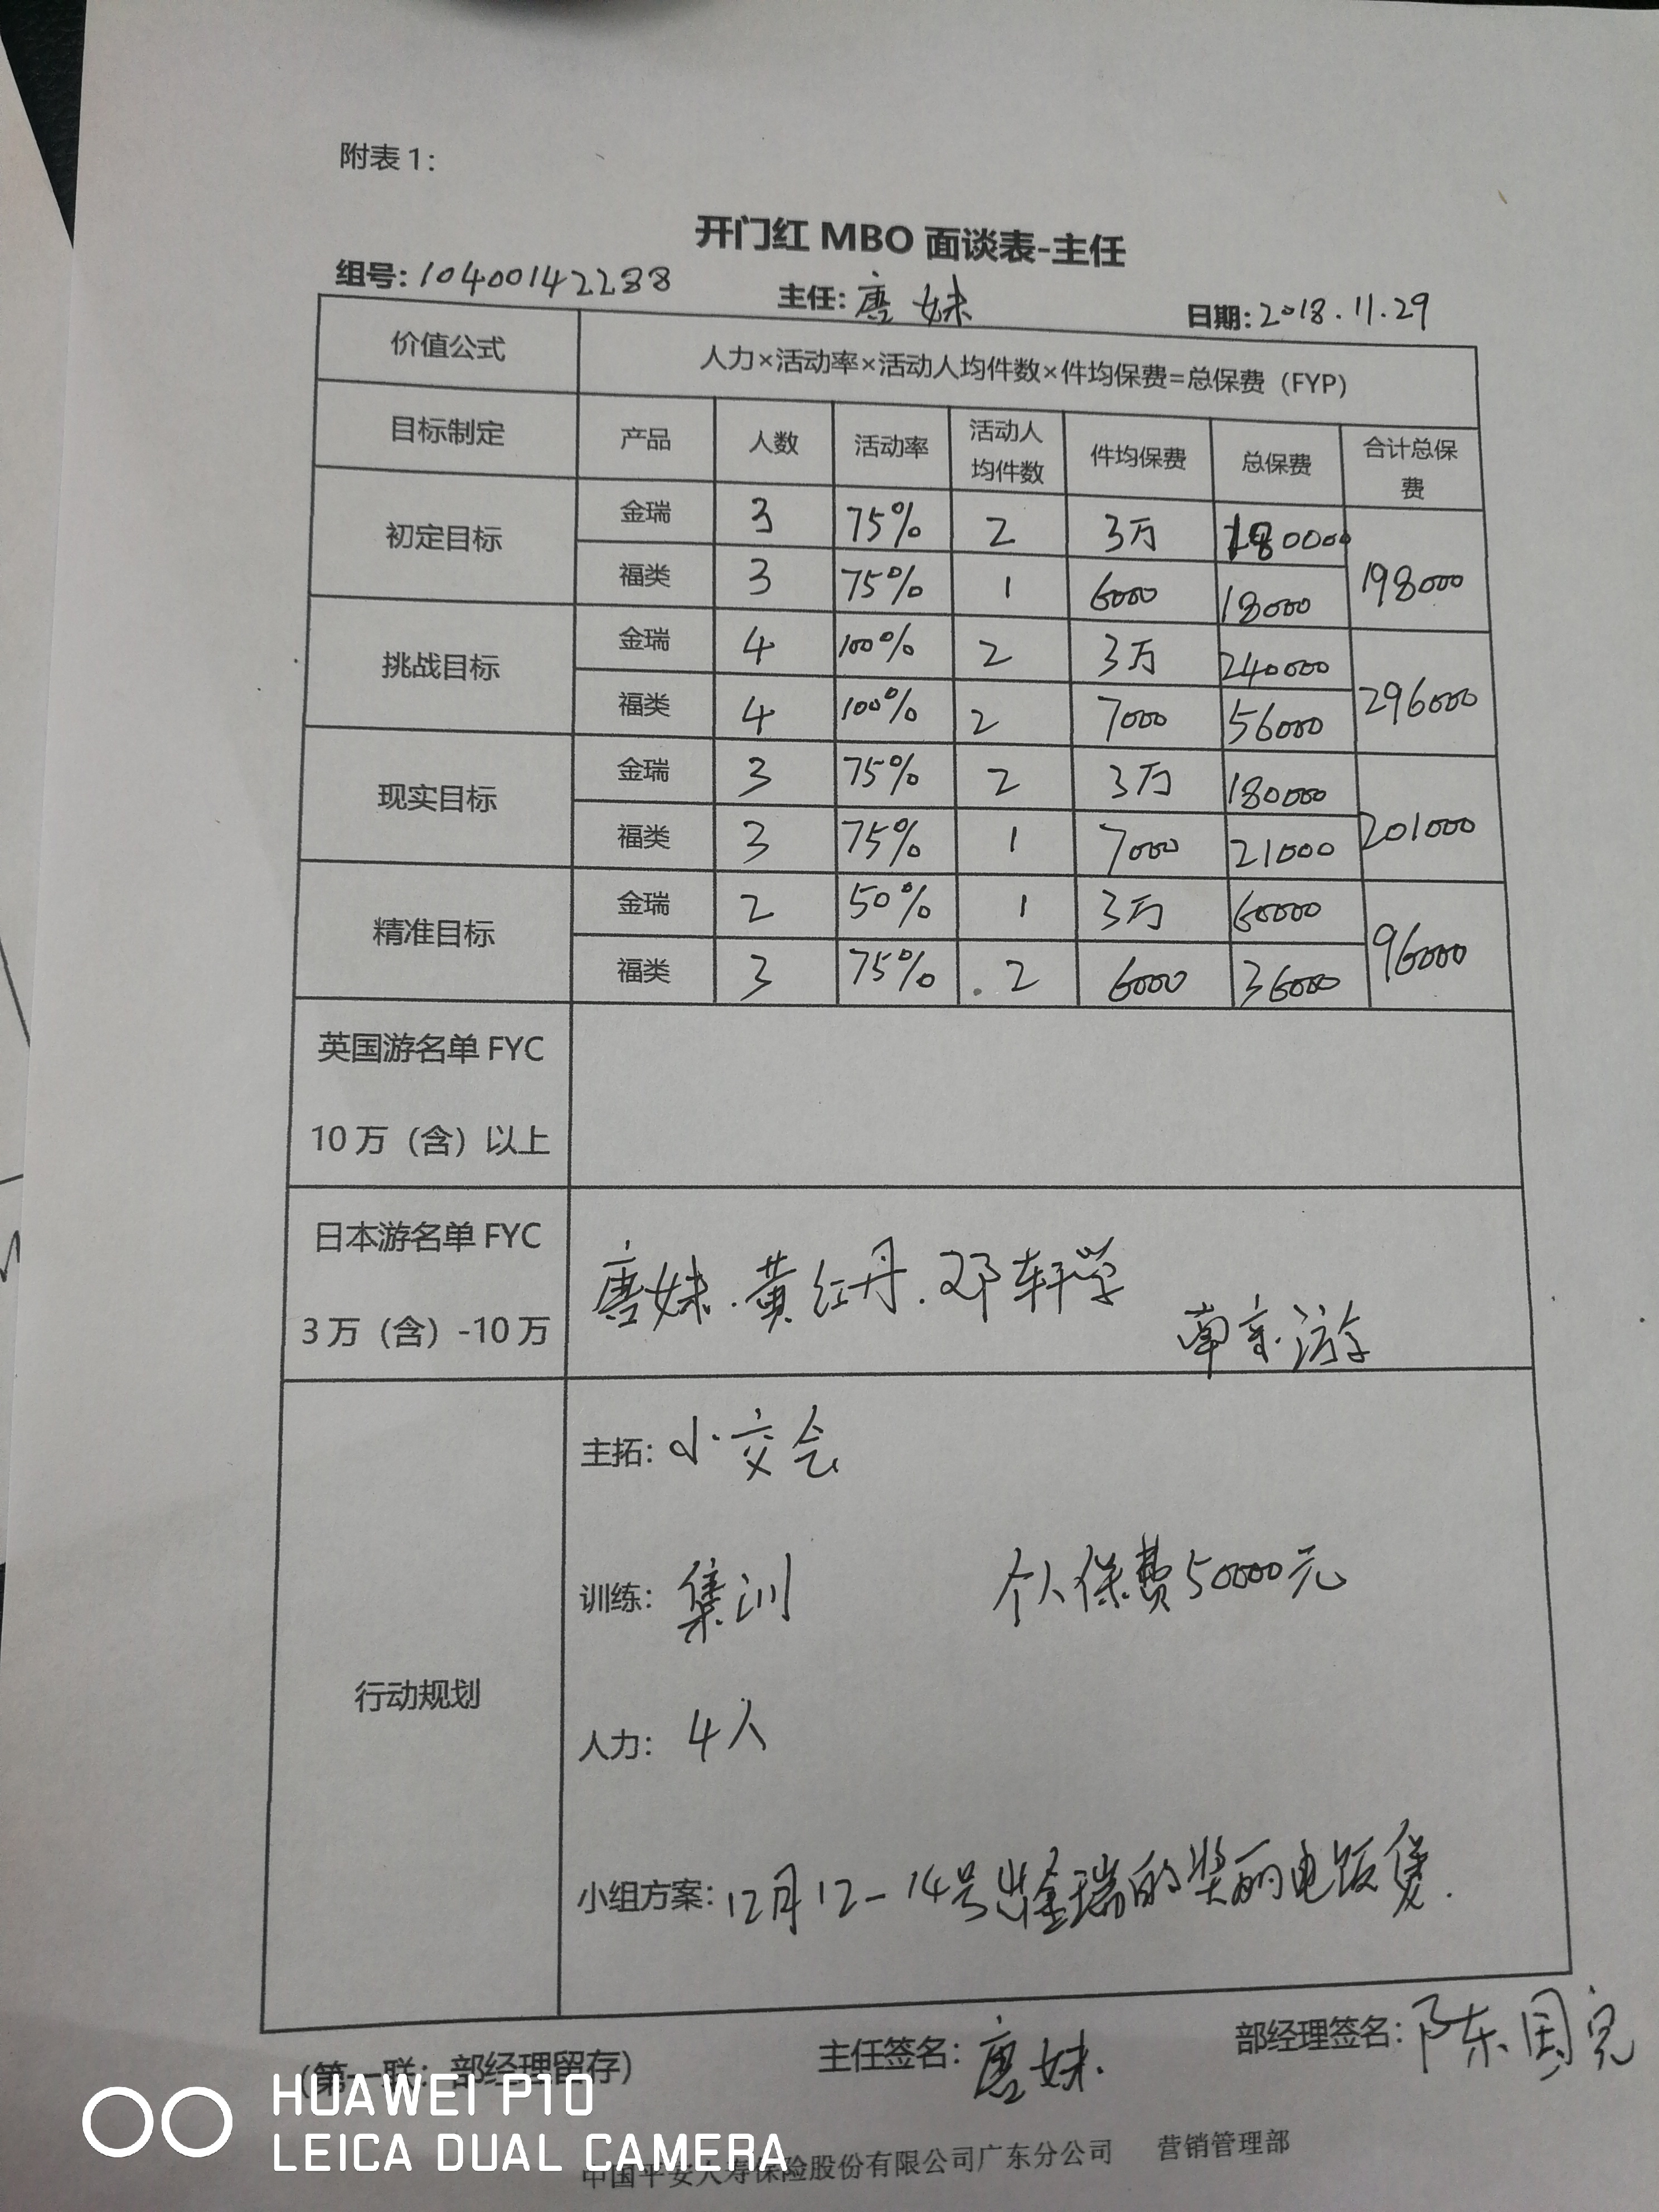 附表1：
开门红 MBO 面谈表-主任
组号：10400142288 主任：唐妹 日期：2018.11.29
价值公式 人力×活动率×活动人均件数×件均保费=总保费（FYP）
目标制定 产品 人数 活动率 活动人均件数 件均保费 总保费 合计总保费
初定目标 金瑞 3 75% 2 3万 180000 198000
福类 3 75% 1 6000 18000
挑战目标 金瑞 4 100% 2 3万 240000 296000
福类 4 100% 2 7000 56000
现实目标 金瑞 3 75% 2 3万 180000 201000
福类 3 75% 1 7000 21000
精准目标 金瑞 2 50% 1 3万 60000 96000
福类 3 75% 2 6000 36000
英国游名单 FYC
10万（含）以上
日本游名单 FYC
3万（含）-10万
唐妹.黄红丹.邓轩学
南京游
行动规划
主拓：小交会
训练：集训 个人保费50000元
人力：4人
小组方案：12月12-14号出金瑞的奖 电饭煲.
（第一联：部经理留存） 主任签名：唐妹. 部经理签名：陈国
中国平安人寿保险股份有限公司广东分公司 营销管理部
HUAWEI P10
LEICA DUAL CAMERA